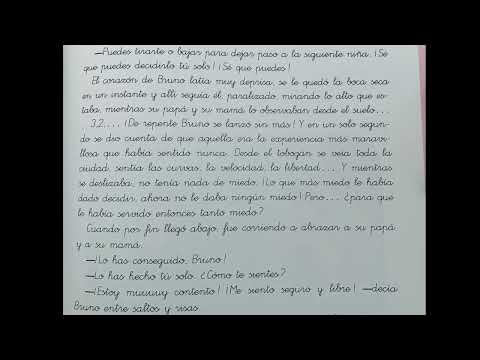 —Puedes tirarte o bajar para dejar paso a la siguiente niña. ¡Sé
que puedes decidirlo tú solo! ¡Sé que puedes!
El corazón de Bruno latía muy deprisa, se le quedó la boca seca
en un instante y allí seguía él, paralizado, mirando lo alto que es-
taba, mientras su papá y su mamá lo observaban desde el suelo...
3,2,... ¡De repente Bruno se lanzó sin más! Y en un solo segun-
do se dio cuenta de que aquella era la experiencia más maravi-
llosa que había sentido nunca. Desde el tobogán se veía toda la
ciudad, sentía las curvas, la velocidad, la libertad... Y mientras
se deslizaba, no tenía nada de miedo. ¡Lo que más miedo le había
dado decidir, ahora no le daba ningún miedo! Pero... ¿para qué
le había servido entonces tanto miedo?
Cuando por fin llegó abajo, fue corriendo a abrazar a su papá
y a su mamá.
—¡Lo has conseguido, Bruno!
—Lo has hecho tú solo. ¿Cómo te sientes?
—¡Estoy muuuuy contento! ¡Me siento seguro y libre! —decía
Bruno entre saltos y risas